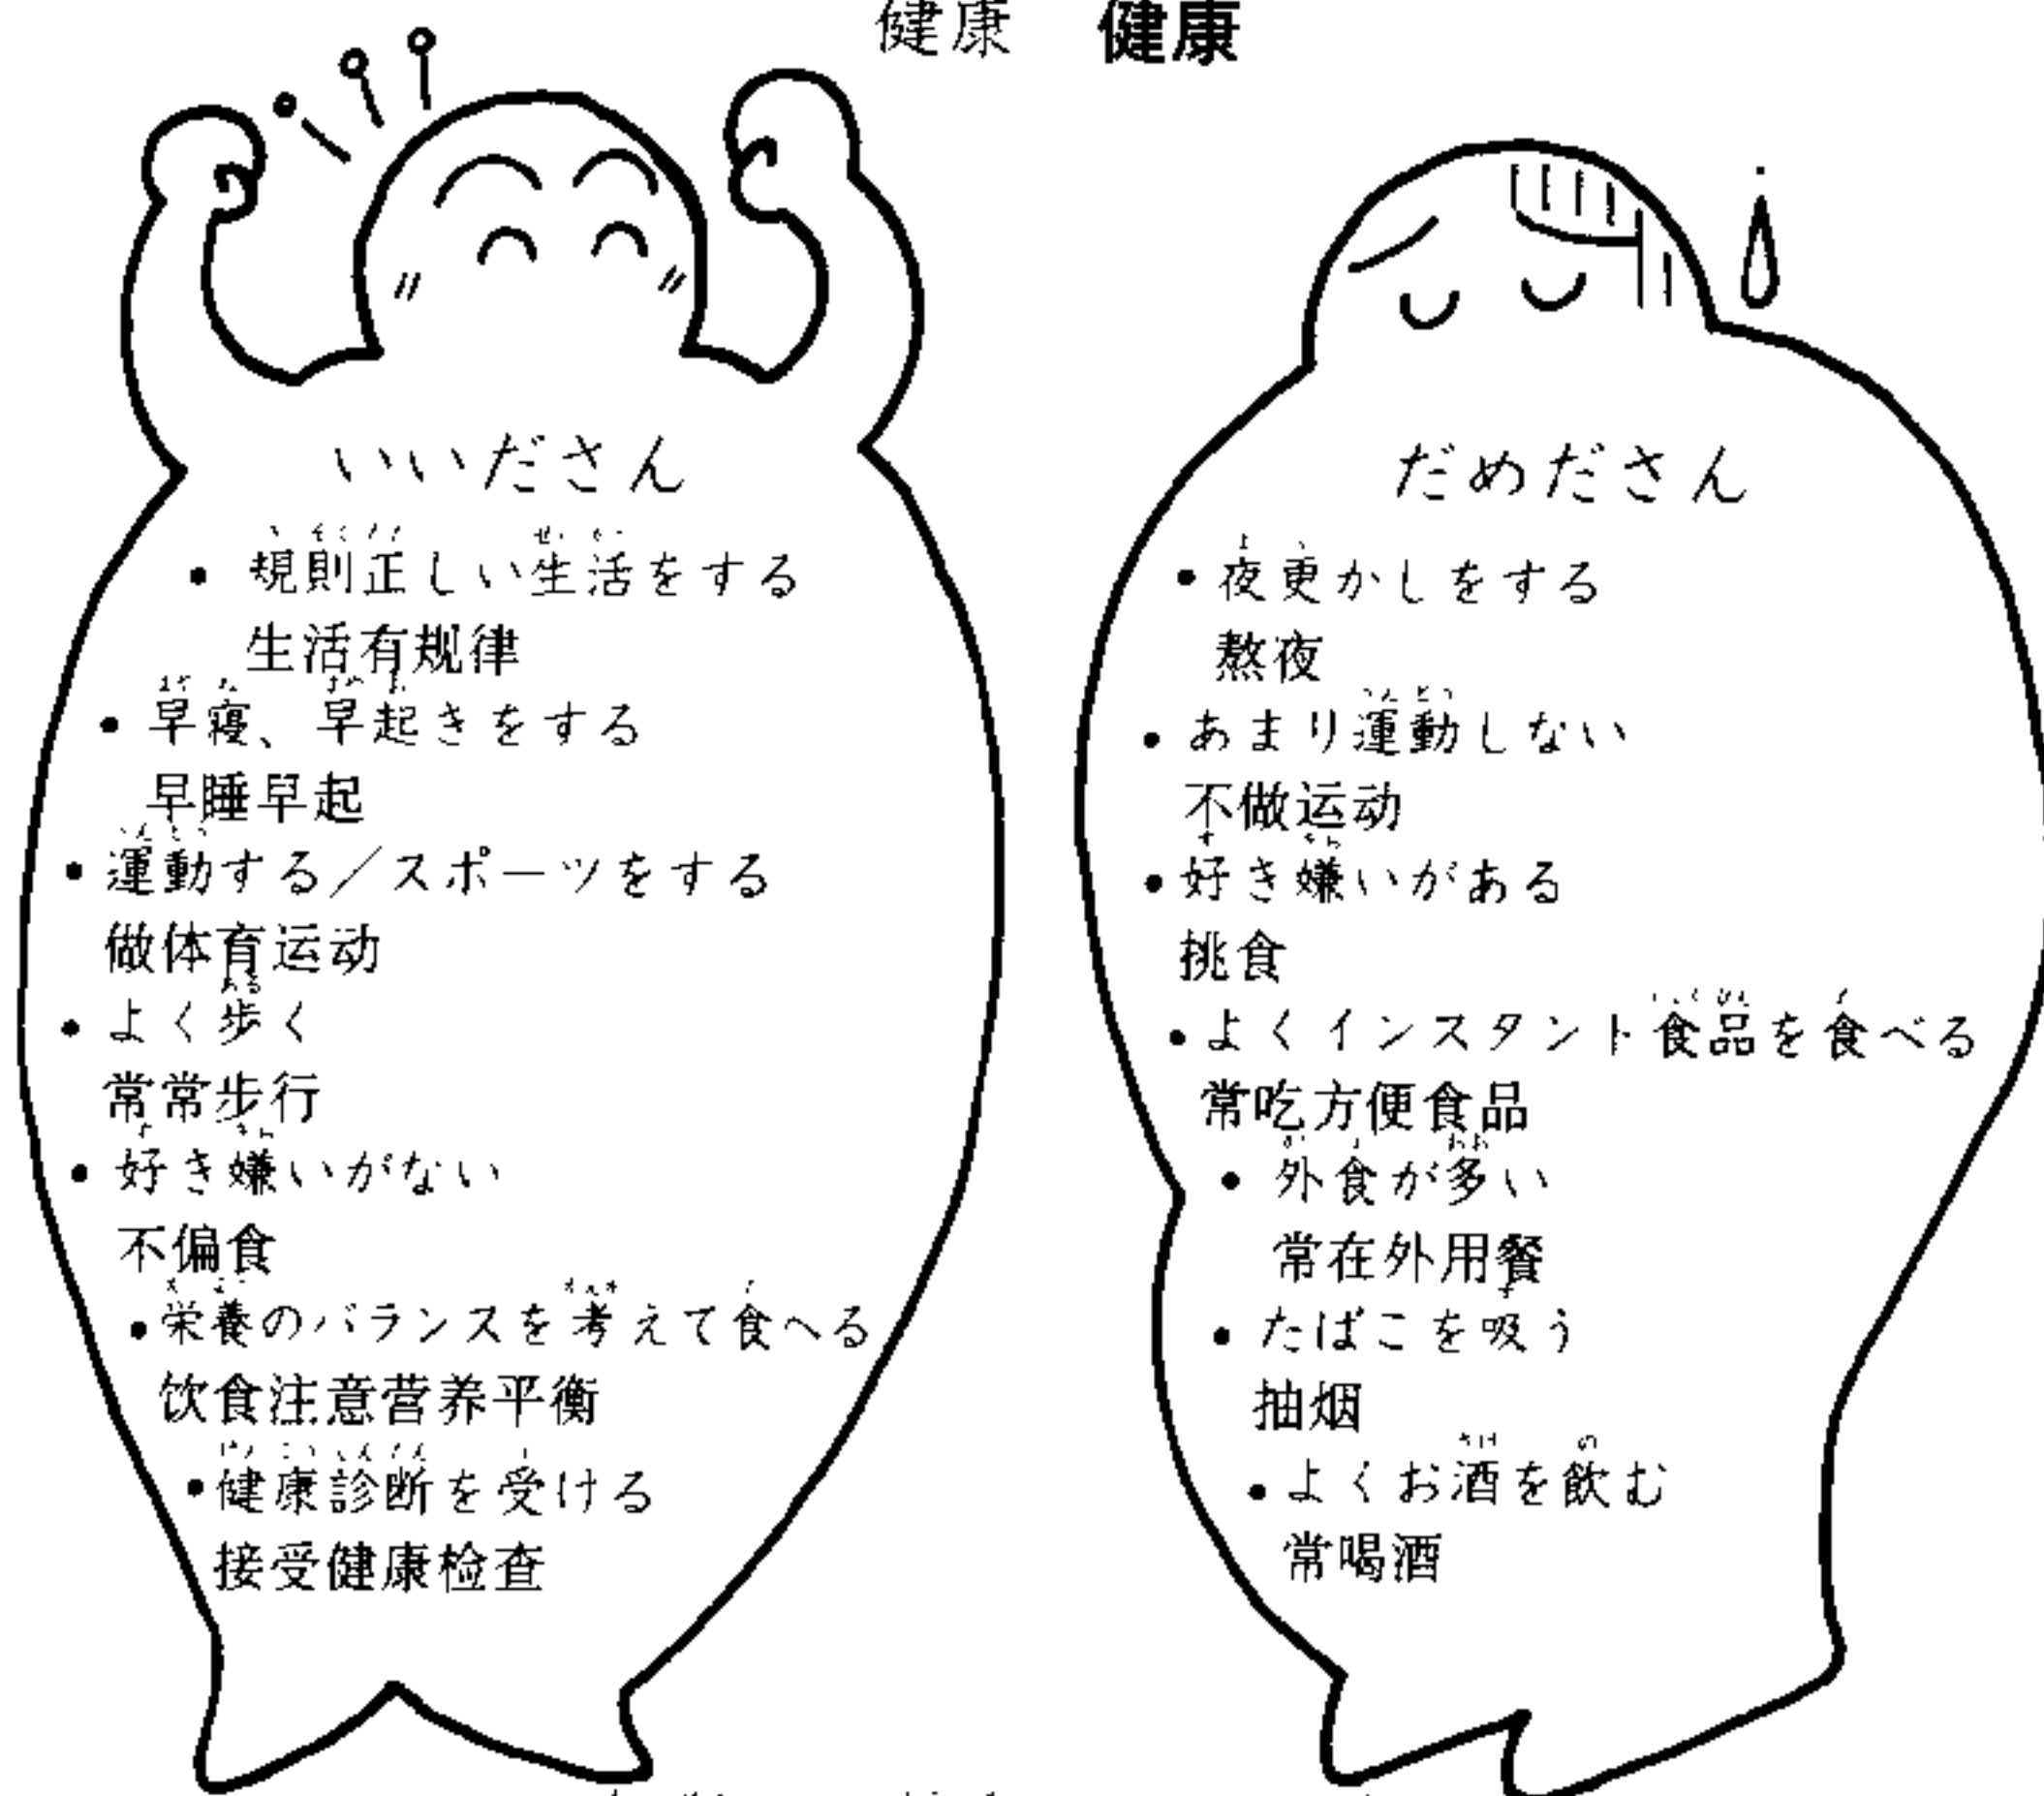 健康　健康
いいださん
• 規則正しい生活をする
生活有规律
• 早寝、早起きをする
早睡早起
• 運動する／スポーツをする
做体育运动
• よく歩く
常常步行
• 好き嫌いがない
不偏食
• 栄養のバランスを考えて食べる
饮食注意营养平衡
• 健康診断を受ける
接受健康检查
だめださん
• 夜更かしをする
熬夜
• あまり運動しない
不做运动
• 好き嫌いがある
挑食
• よくインスタント食品を食べる
常吃方便食品
• 外食が多い
常在外用餐
• たばこを吸う
抽烟
• よくお酒を飲む
常喝酒